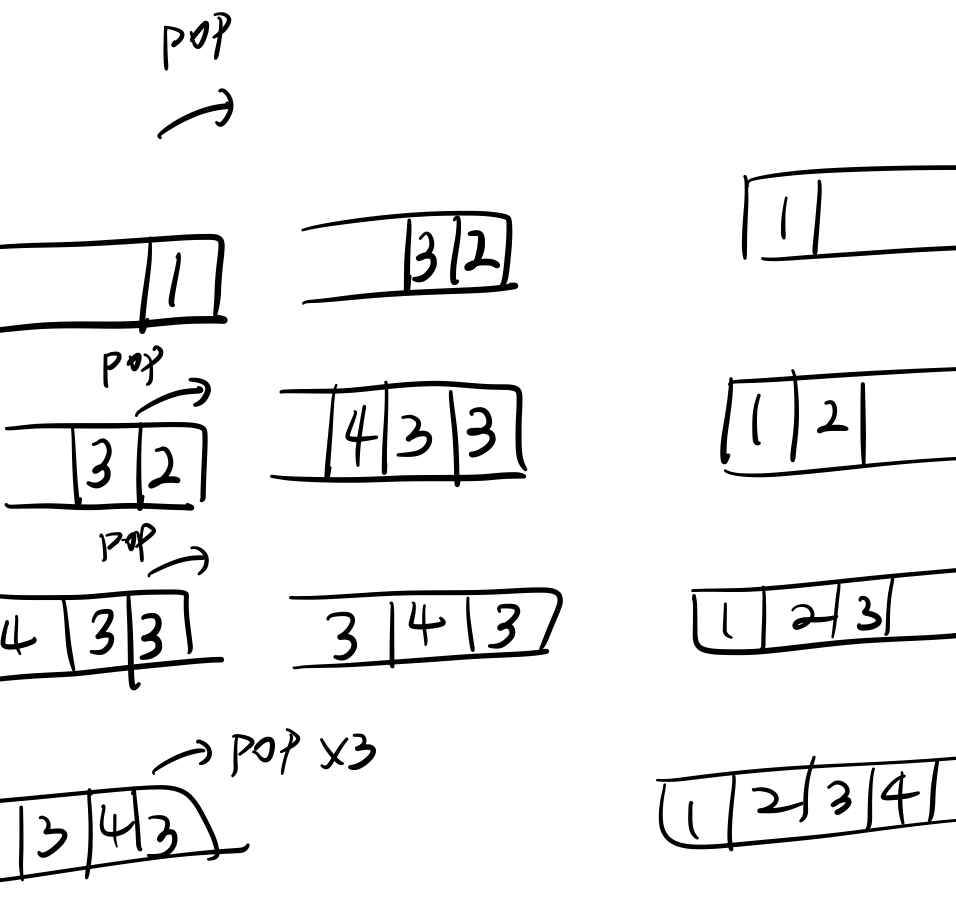 POP
1
3 2
1
POP
3 2
4 3 3
1 2
POP
4 3 3
3 4 3
1 2 3
POP X3
3 4 3
1 2 3 4